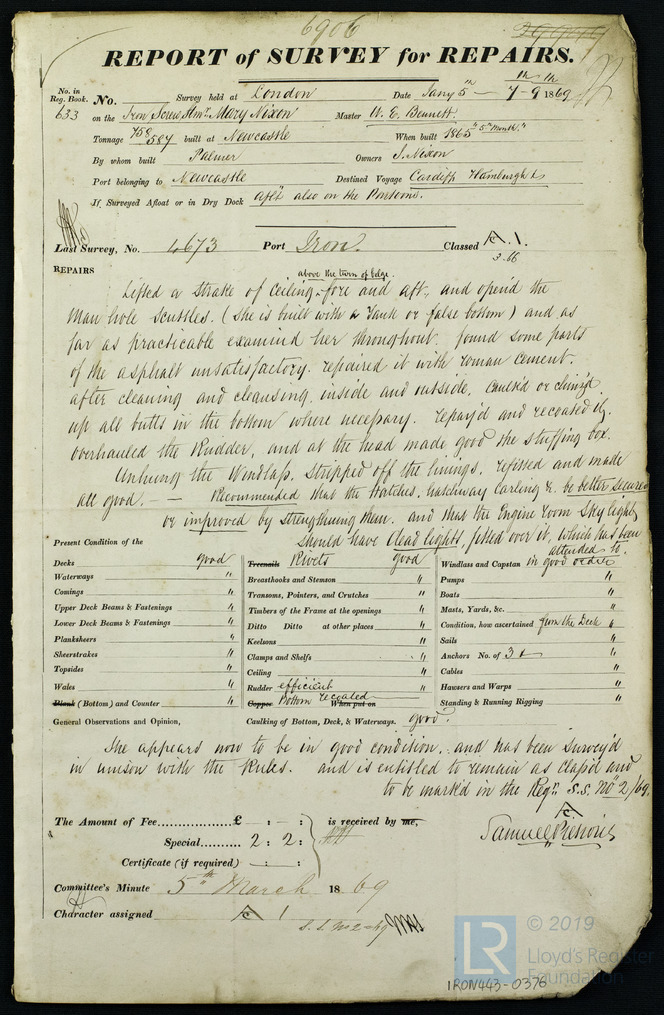 6906
REPORT of SURVEY for REPAIRS.
No. in Reg. Book. No. Survey held at London Date Jany 5th — 7th - 9th 1869
633 on the Iron Screw Stmr Mary Nixon Master W. E. Bennett.
Tonnage 758 587 built at Newcastle When built 1865 "5th Month."
By whom built Palmer Owners J. Nixon
Port belonging to Newcastle Destined Voyage Cardiff Hamburgh &
If Surveyed Afloat or in Dry Dock aflt also on the Pontoons.
Last Survey, No. 4673 Port Iron. Classed A.1.
3.66
REPAIRS above the turn of bilge.
Lifted a Strake of Ceiling fore and aft, and open'd the
Man hole Scuttles. (She is built with a Tank or false bottom) and as
far as practicable examined her throughout. found some parts
of the asphalt unsatisfactory. repaired it with roman cement.
after cleaning and cleansing, inside and outside, caulk'd or clinch'd
up all butts in the bottom where necessary. repay'd and recoated it.
overhauled the Rudder, and at the head made good the stuffing box.
Unhung the Windlass, stripped off the linings, refitted and made
all good. — — Recommended that the Hatches, hatchway carlings &. be better secured
or improved by strengthening them. and that the Engine room Sky lights
should have dead lights, fitted over it, which has been
attended to.
Present Condition of the
Decks good
Waterways "
Comings "
Upper Deck Beams & Fastenings "
Lower Deck Beams & Fastenings "
Planksheers "
Sheerstrakes "
Topsides "
Wales "
Plank (Bottom) and Counter "
General Observations and Opinion,
Treenails Rivets good
Breasthooks and Stemson "
Transoms, Pointers, and Crutches "
Timbers of the Frame at the openings "
Ditto Ditto at other places "
Keelsons "
Clamps and Shelfs "
Ceiling "
Rudder efficient "
Copper Bottom recoated When put on
Caulking of Bottom, Deck, & Waterways. good.
Windlass and Capstan in good order
Pumps "
Boats "
Masts, Yards, &c. "
Condition, how ascertained from the Deck "
Sails "
Anchors No. of 3 & "
Cables "
Hawsers and Warps "
Standing & Running Rigging "
She appears now to be in good condition, and has been survey'd
in unison with the Rules. and is entitled to remain as class'd and
to be mark'd in the Regr. S.S. No 2/69.
The Amount of Fee £ : : is received by me,
Special 2 : 2 :
Certificate (if required) : :
Committee's Minute 5th March 1869
Character assigned A 1
S.S. No 2-69
© 2019
LR
Lloyd's Register
Foundation
IRON443-0376